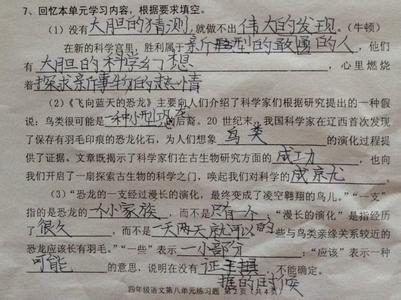 7、回忆本单元学习内容，根据要求填空。
(1) 没有大胆的猜测，就做不出伟大的发现。(牛顿)
在新的科学宫里，胜利属于新型的敢闯的人，他们
有大胆的科学幻想，心里燃烧
着探求新事物的热情
(2)《飞向蓝天的恐龙》主要向人们介绍了科学家们根据研究提出的一种假
说：鸟类很可能是一种小型恐龙的后裔。20 世纪末，我国科学家在辽西首次发现
了保存有羽毛印痕的恐龙化石，为人们想象鸟类的演化过程提
供了证据。文章既揭示了科学家们在古生物研究方面的成功，也向
我们开启了一扇探索古生物的科学之门，唤起我们对科学的
(3)“恐龙的一支经过漫长的演化，最终变成了凌空翱翔的鸟儿。”“一支”
指的是恐龙的一个小家族，而不是只有一个；“漫长的演化”是指经历
了很久，而不是一天两天就可以的些与鸟类亲缘关系较近的
恐龙应该长有羽毛。”“一些”表示一小部分；“应该”表示一种
可能的意思，说明在没有证据，不能确定。
据的时候
四年级语文第八单元练习题 第 2 页（共 4 页）